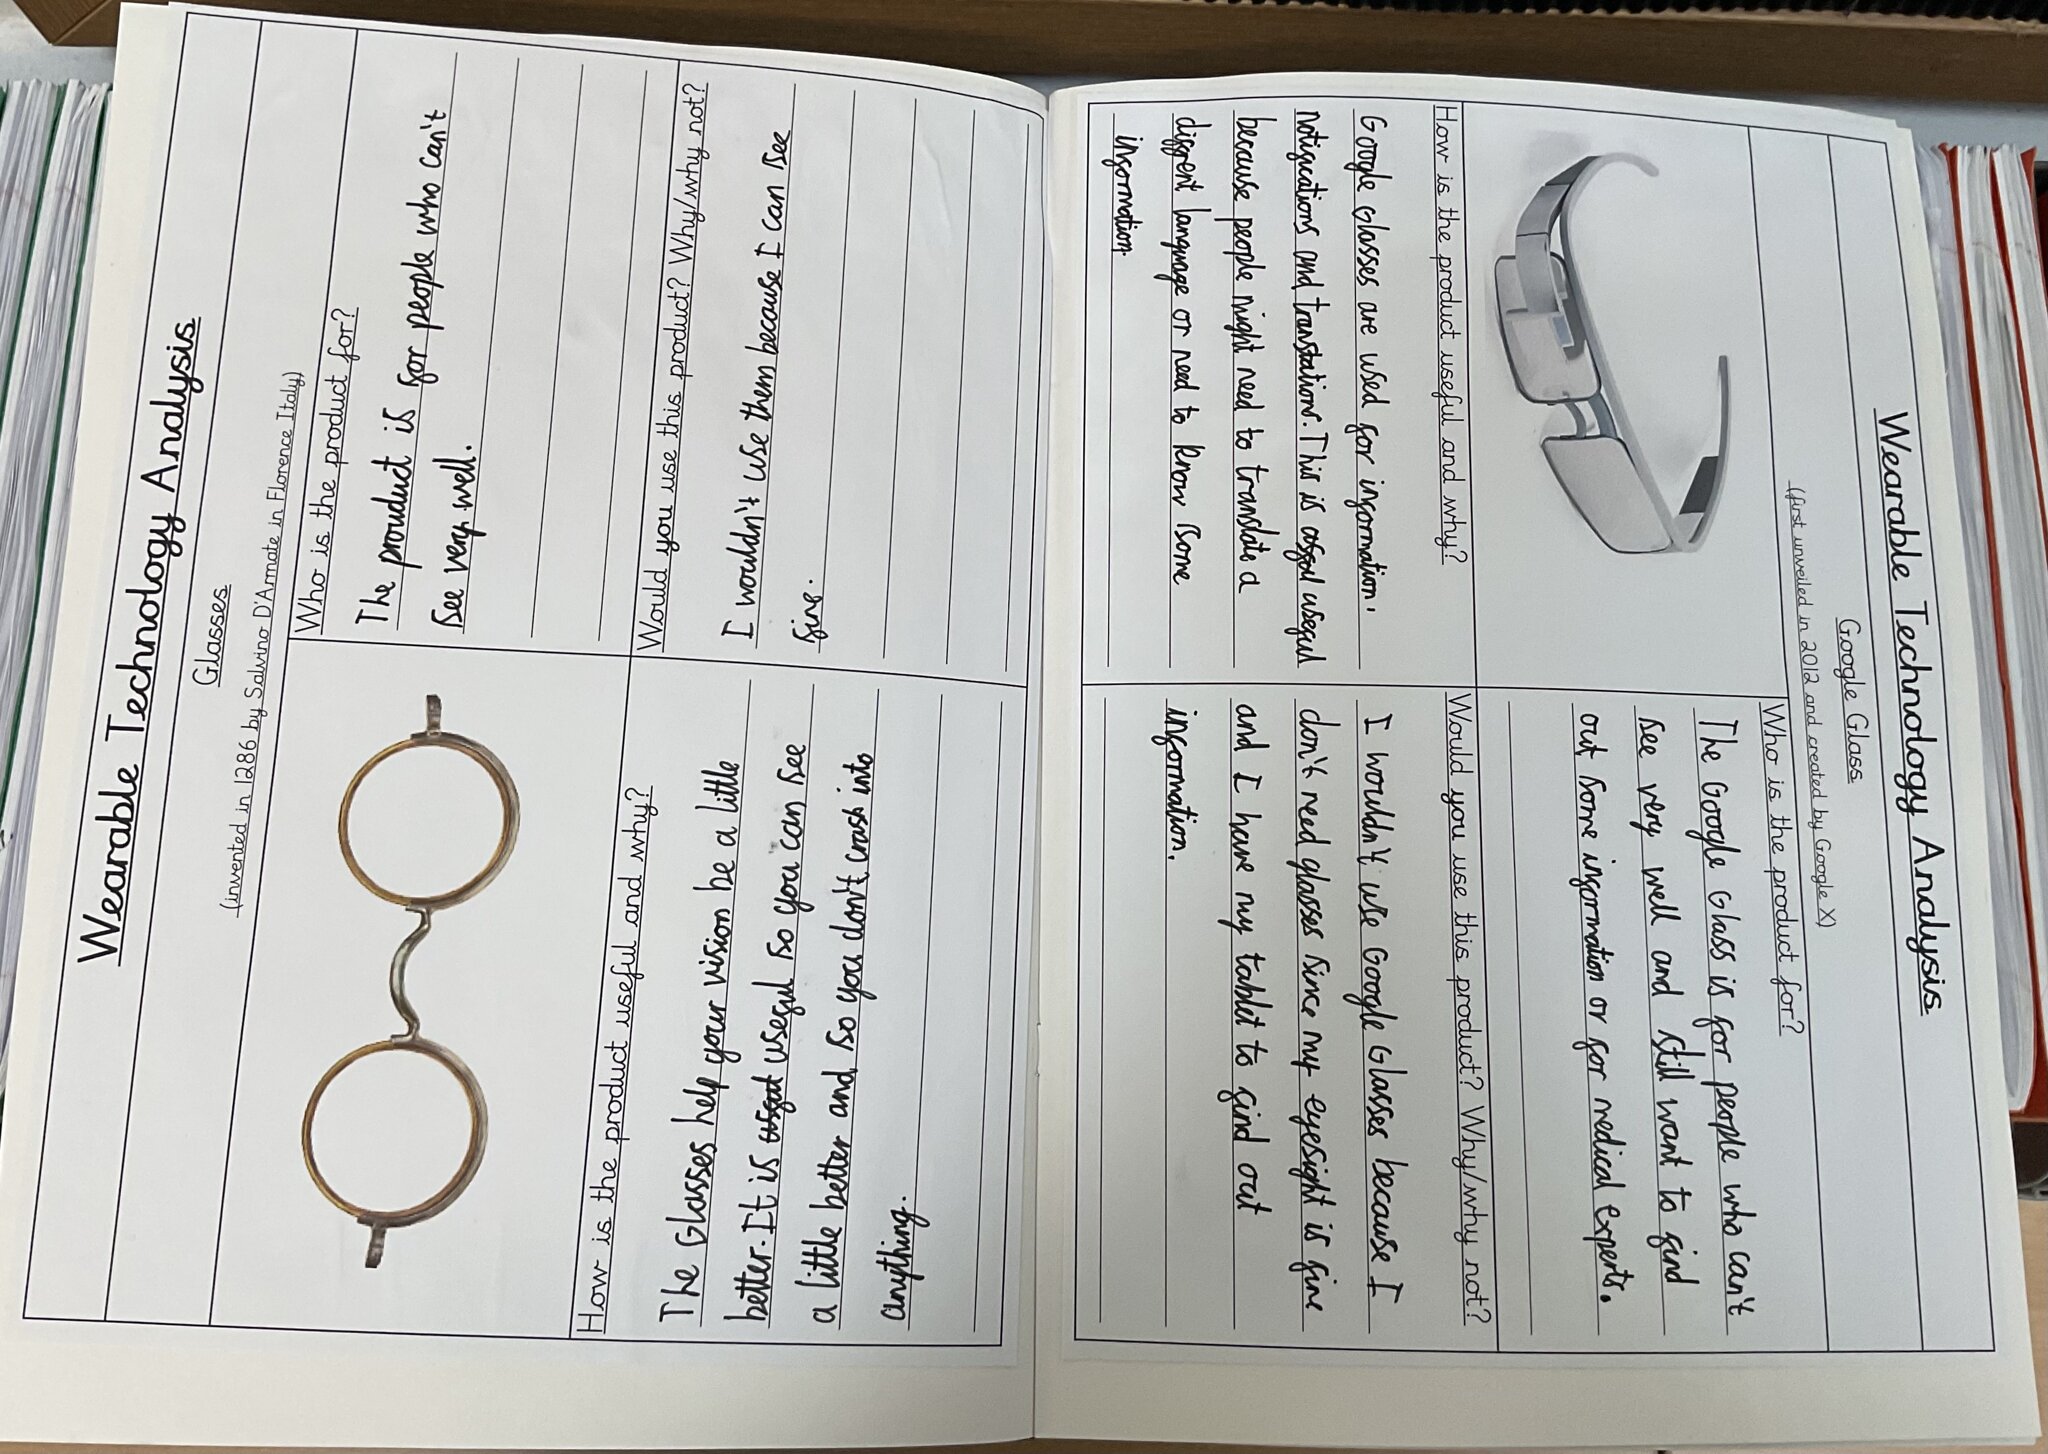 Wearable Technology Analysis
Glasses
(invented in 1286 by Salvino D'Armate in Florence Italy)
Who is the product for?
The prouduct is for people who can't
see very well.
How is the product useful and why?
The Glasses help your vision be a little
better. It is useful so you can see
a little better and so you don't crash into
anything.
Would you use this product? Why/why not?
I wouldn't use them because I can see
fine.
Wearable Technology Analysis
Google Glass
(first unveiled in 2012 and created by Google X)
Who is the product for?
The Google Glass is for people who can't
see very well and still want to find
out some information or for medical experts.
How is the product useful and why?
Google Glasses are used for information,
notifications and translations. This is useful
because people might need to translate a
different language or need to know some
information.
Would you use this product? Why/why not?
I wouldn't use Google Glasses because I
don't need glasses since my eyesight is fine
and I have my tablet to find out
information.